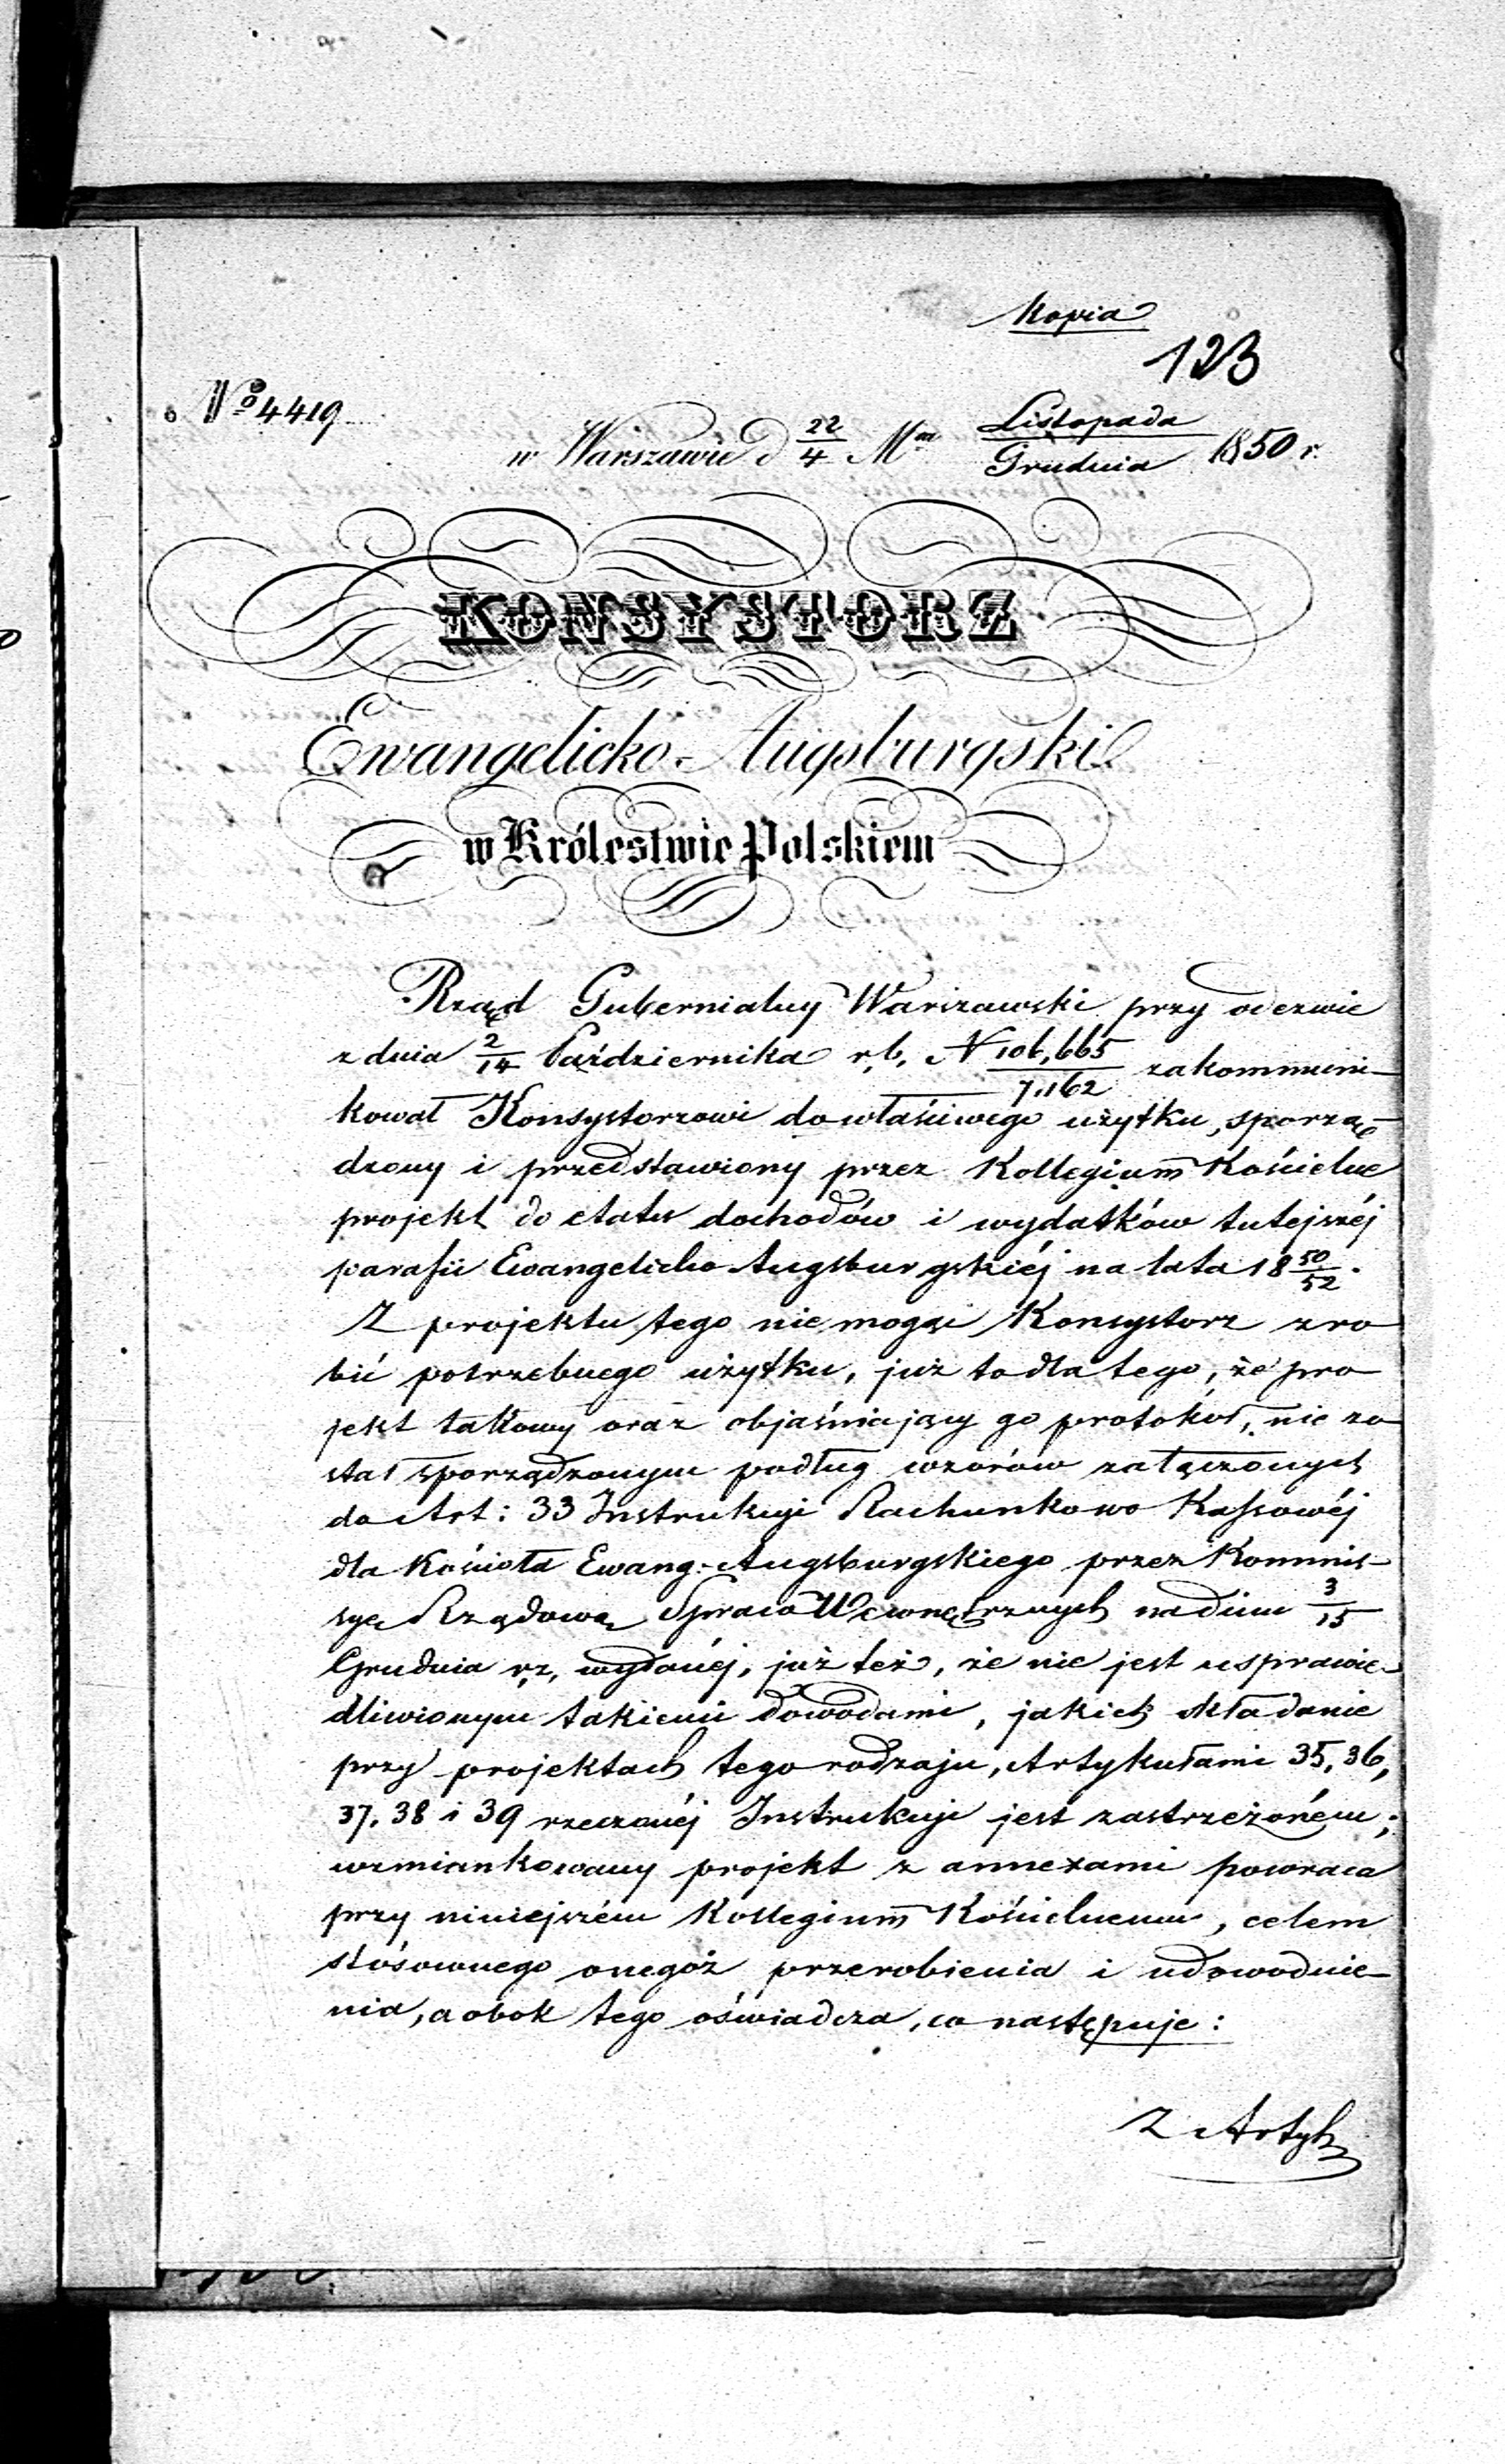 Kopia
123
No 4419
w Warszawie d 22/4 Mca Listopada/Grudnia 1850 r.
KONSYSTORZ
Ewangelicko-Augsburgski
w Królestwie Polskiem
Rząd Gubernialny Warszawski przy odezwie
z dnia 2/14 Października r.b. N 106,665/7,162 zakommuni-
kował Konsystorzowi do właściwego użytku, sporzą-
dzony i przedstawiony przez Kollegium Kościelne
projekt do etatu dochodów i wydatków tutejszéj
parafii Ewangelicko Augsburgskiéj na lata 18 50/52.
Z projektu tego nie mogąc Konsystorz zro
bić potrzebnego użytku, już to dla tego, że pro
jekt takowy oraz objaśniający go protokół, nie zo
stał sporządzonym podług wzorów załączonych
do Art: 33 Instrukcyi Rachunkowo Kassowéj
dla Kościoła Ewang-Augsburgskiego przez Kommis-
syę Rządową Spraw Wewnętrznych na dniu 3/15
Grudnia r.z. wydanéj, już też, że nie jest usprawie-
dliwionym takiemi dowodami, jakich składanie
przy projektach tego rodzaju, Artykułami 35, 36,
37, 38 i 39 rzeczonéj Instrukcyi jest zastrzeżoném;
wzmiankowany projekt z annexami powraca
przy niniejszém Kollegium Kościelnemu, celem
stósownego onegóż przerobienia i udowodnie-
nia, a obok tego oświadcza, co następuje:
Z Artyk